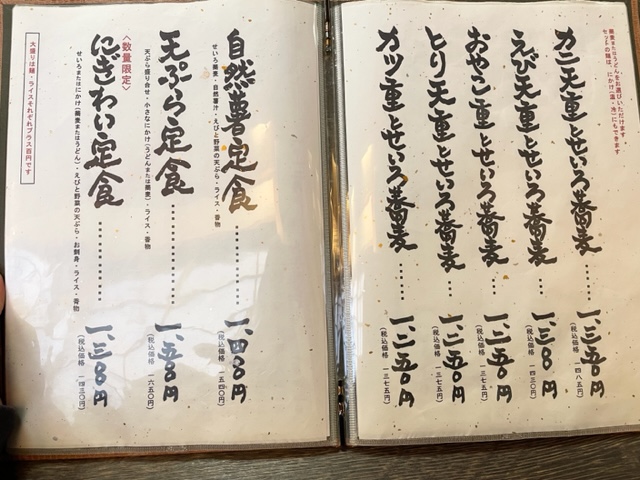 蕎麦またはうどんをお選びいただけます
セットの麺は、にかけ(温・冷)にもできます
カニ天重とせいろ蕎麦……一、三五〇円
(税込価格 一四八五円)
えび天重とせいろ蕎麦……一、三〇〇円
(税込価格 一四三〇円)
おやこ重とせいろ蕎麦……一、二五〇円
(税込価格 一三七五円)
とり天重とせいろ蕎麦……一、二五〇円
(税込価格 一三七五円)
カツ重とせいろ蕎麦……一、二五〇円
(税込価格 一三七五円)
自然薯定食………一、四〇〇円
せいろ蕎麦・自然薯汁・えびと野菜の天ぷら・ライス・香物
(税込価格 一五四〇円)
天ぷら定食………一、五〇〇円
天ぷら盛り合せ・小さなにかけ(うどんまたは蕎麦)・ライス・香物
(税込価格 一六五〇円)
〈数量限定〉
にぎわい定食………一、三〇〇円
せいろまたはにかけ(蕎麦またはうどん)・えびと野菜の天ぷら・お刺身・ライス・香物
(税込価格 一四三〇円)
大盛りは麺・ライスそれぞれプラス百円です